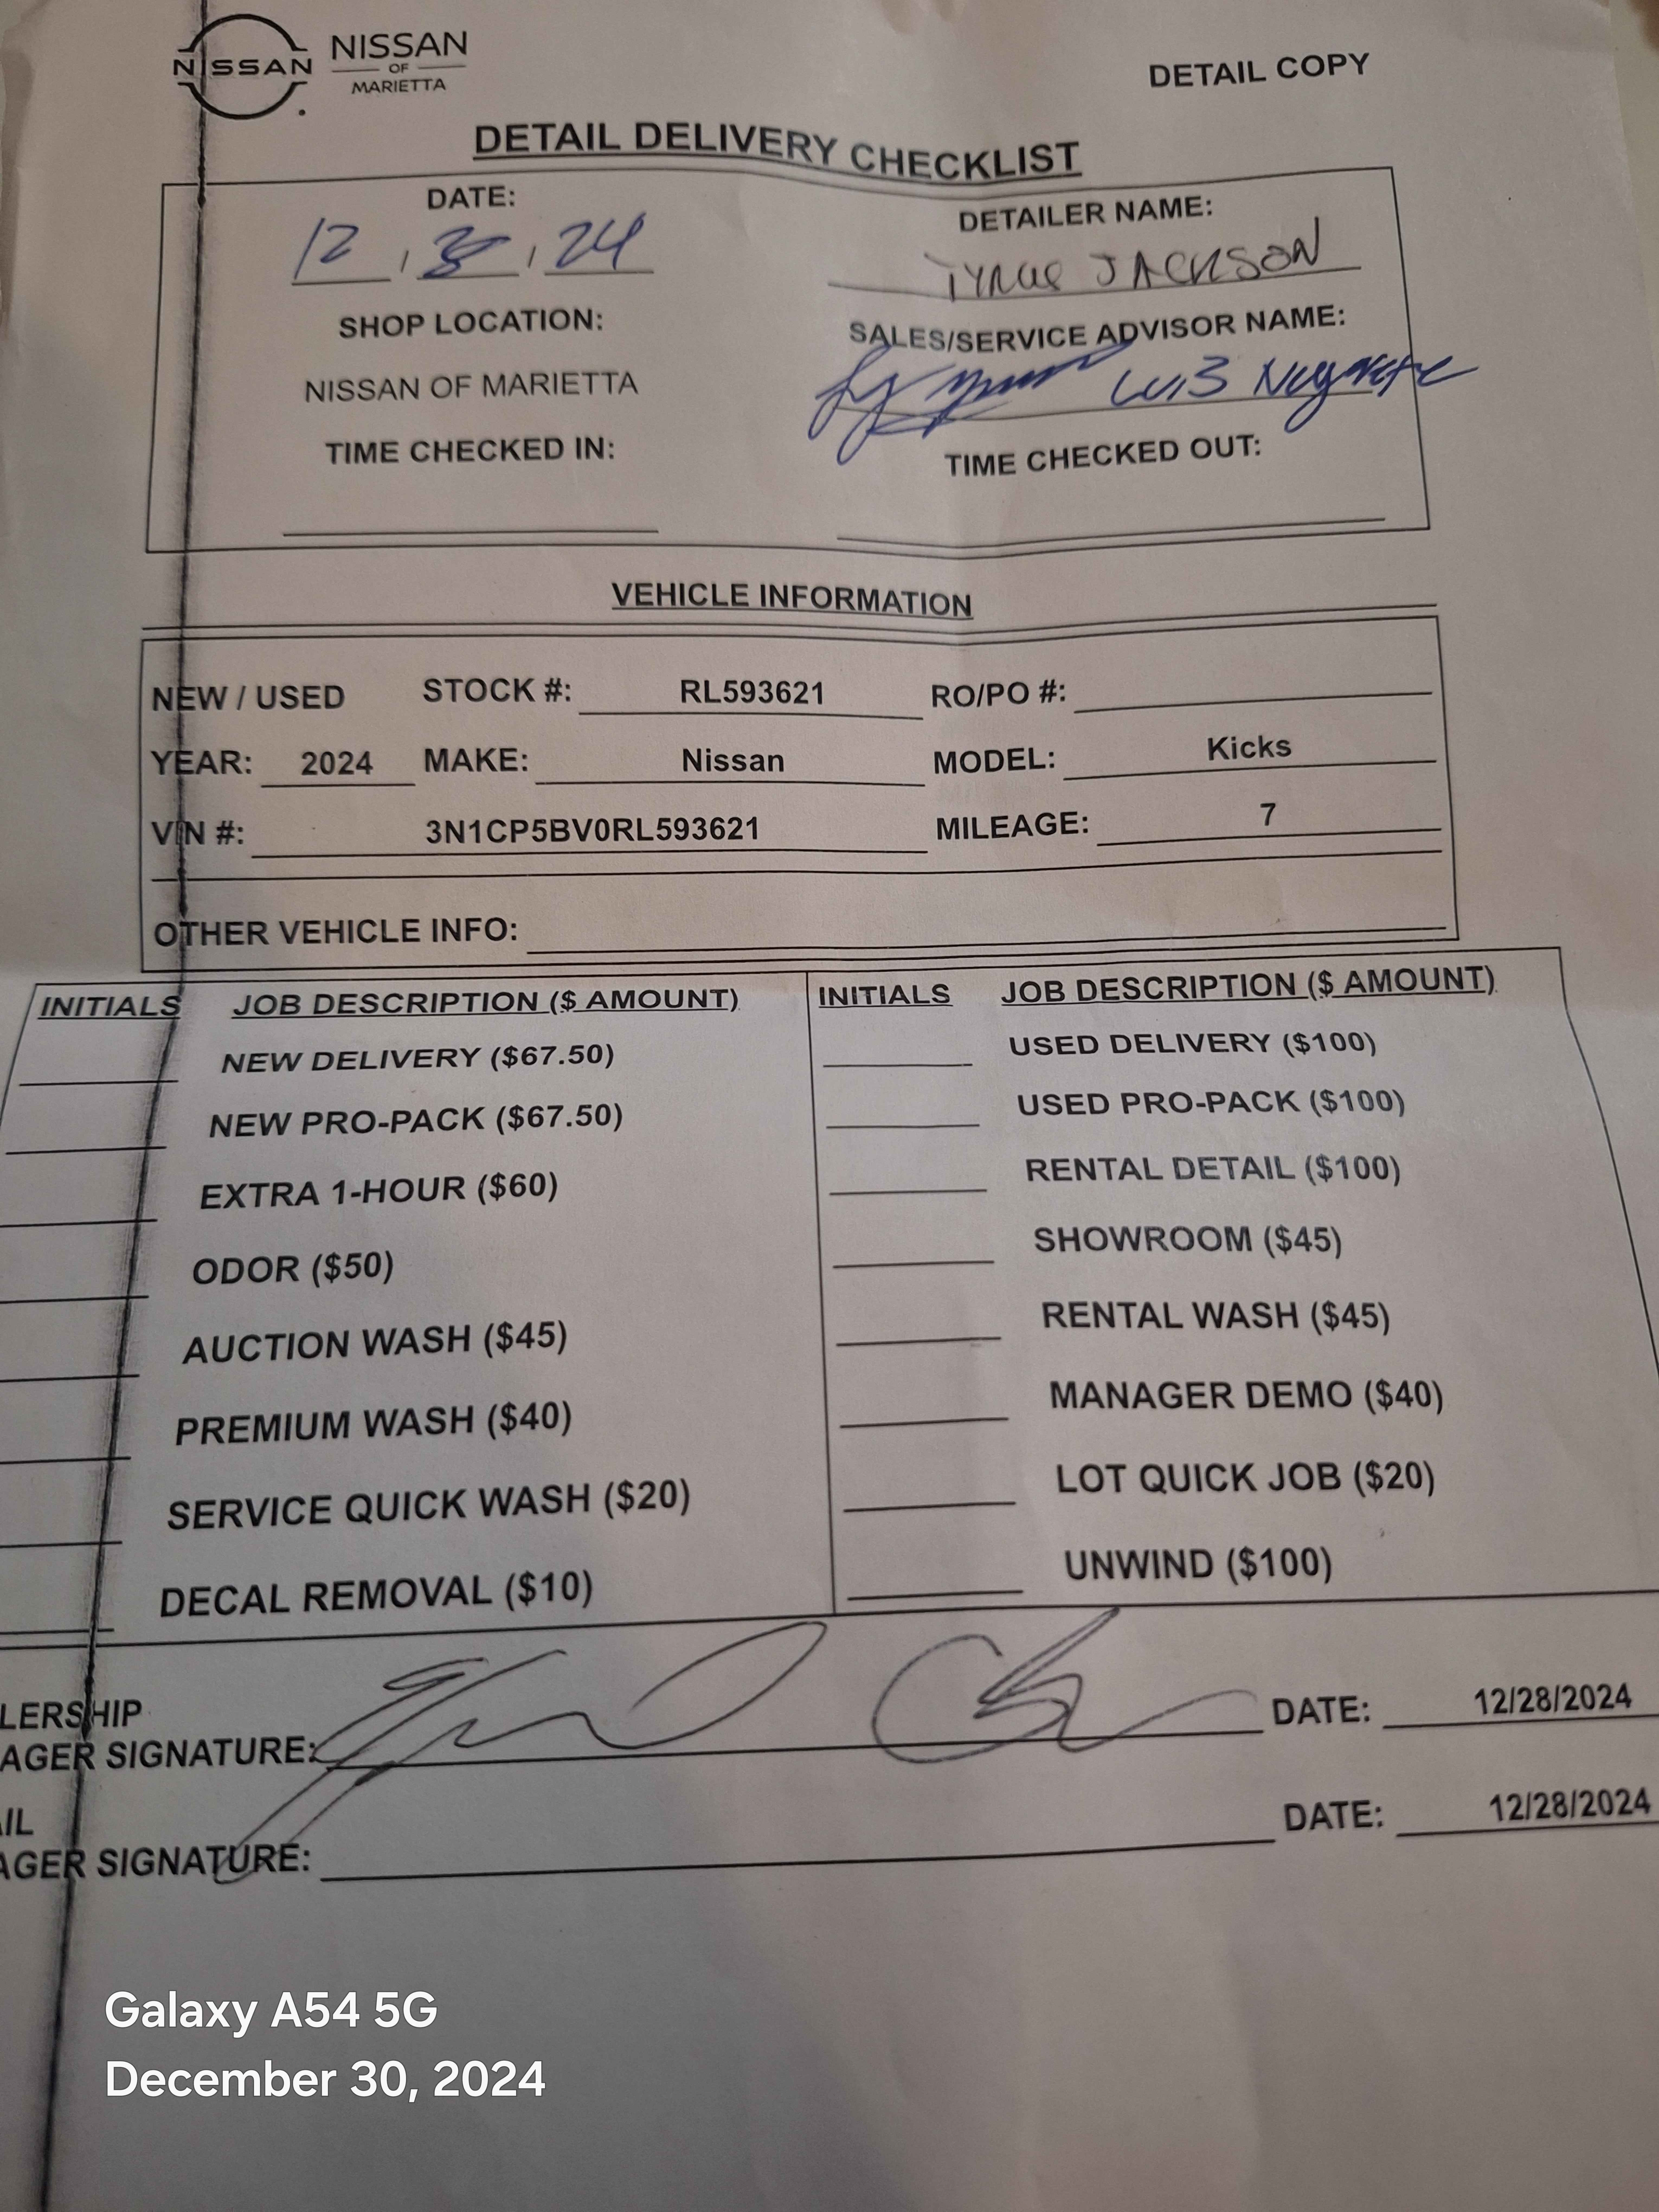 NISSAN NISSAN
OF
MARIETTA
DETAIL COPY
DETAIL DELIVERY CHECKLIST
DATE:
12, , 24
DETAILER NAME:
JACKSON
SHOP LOCATION:
NISSAN OF MARIETTA
SALES/SERVICE ADVISOR NAME:
LUIS
TIME CHECKED IN:
TIME CHECKED OUT:
VEHICLE INFORMATION
NEW / USED STOCK #: RL593621 RO/PO #:
YEAR: 2024 MAKE: Nissan MODEL: Kicks
VIN #: 3N1CP5BV0RL593621 MILEAGE: 7
OTHER VEHICLE INFO:
INITIALS JOB DESCRIPTION ($ AMOUNT) INITIALS JOB DESCRIPTION ($ AMOUNT)
NEW DELIVERY ($67.50) USED DELIVERY ($100)
NEW PRO-PACK ($67.50) USED PRO-PACK ($100)
EXTRA 1-HOUR ($60) RENTAL DETAIL ($100)
ODOR ($50) SHOWROOM ($45)
AUCTION WASH ($45) RENTAL WASH ($45)
PREMIUM WASH ($40) MANAGER DEMO ($40)
SERVICE QUICK WASH ($20) LOT QUICK JOB ($20)
DECAL REMOVAL ($10) UNWIND ($100)
LERSHIP
AGER SIGNATURE: DATE: 12/28/2024
AIL
AGER SIGNATURE: DATE: 12/28/2024
Galaxy A54 5G
December 30, 2024